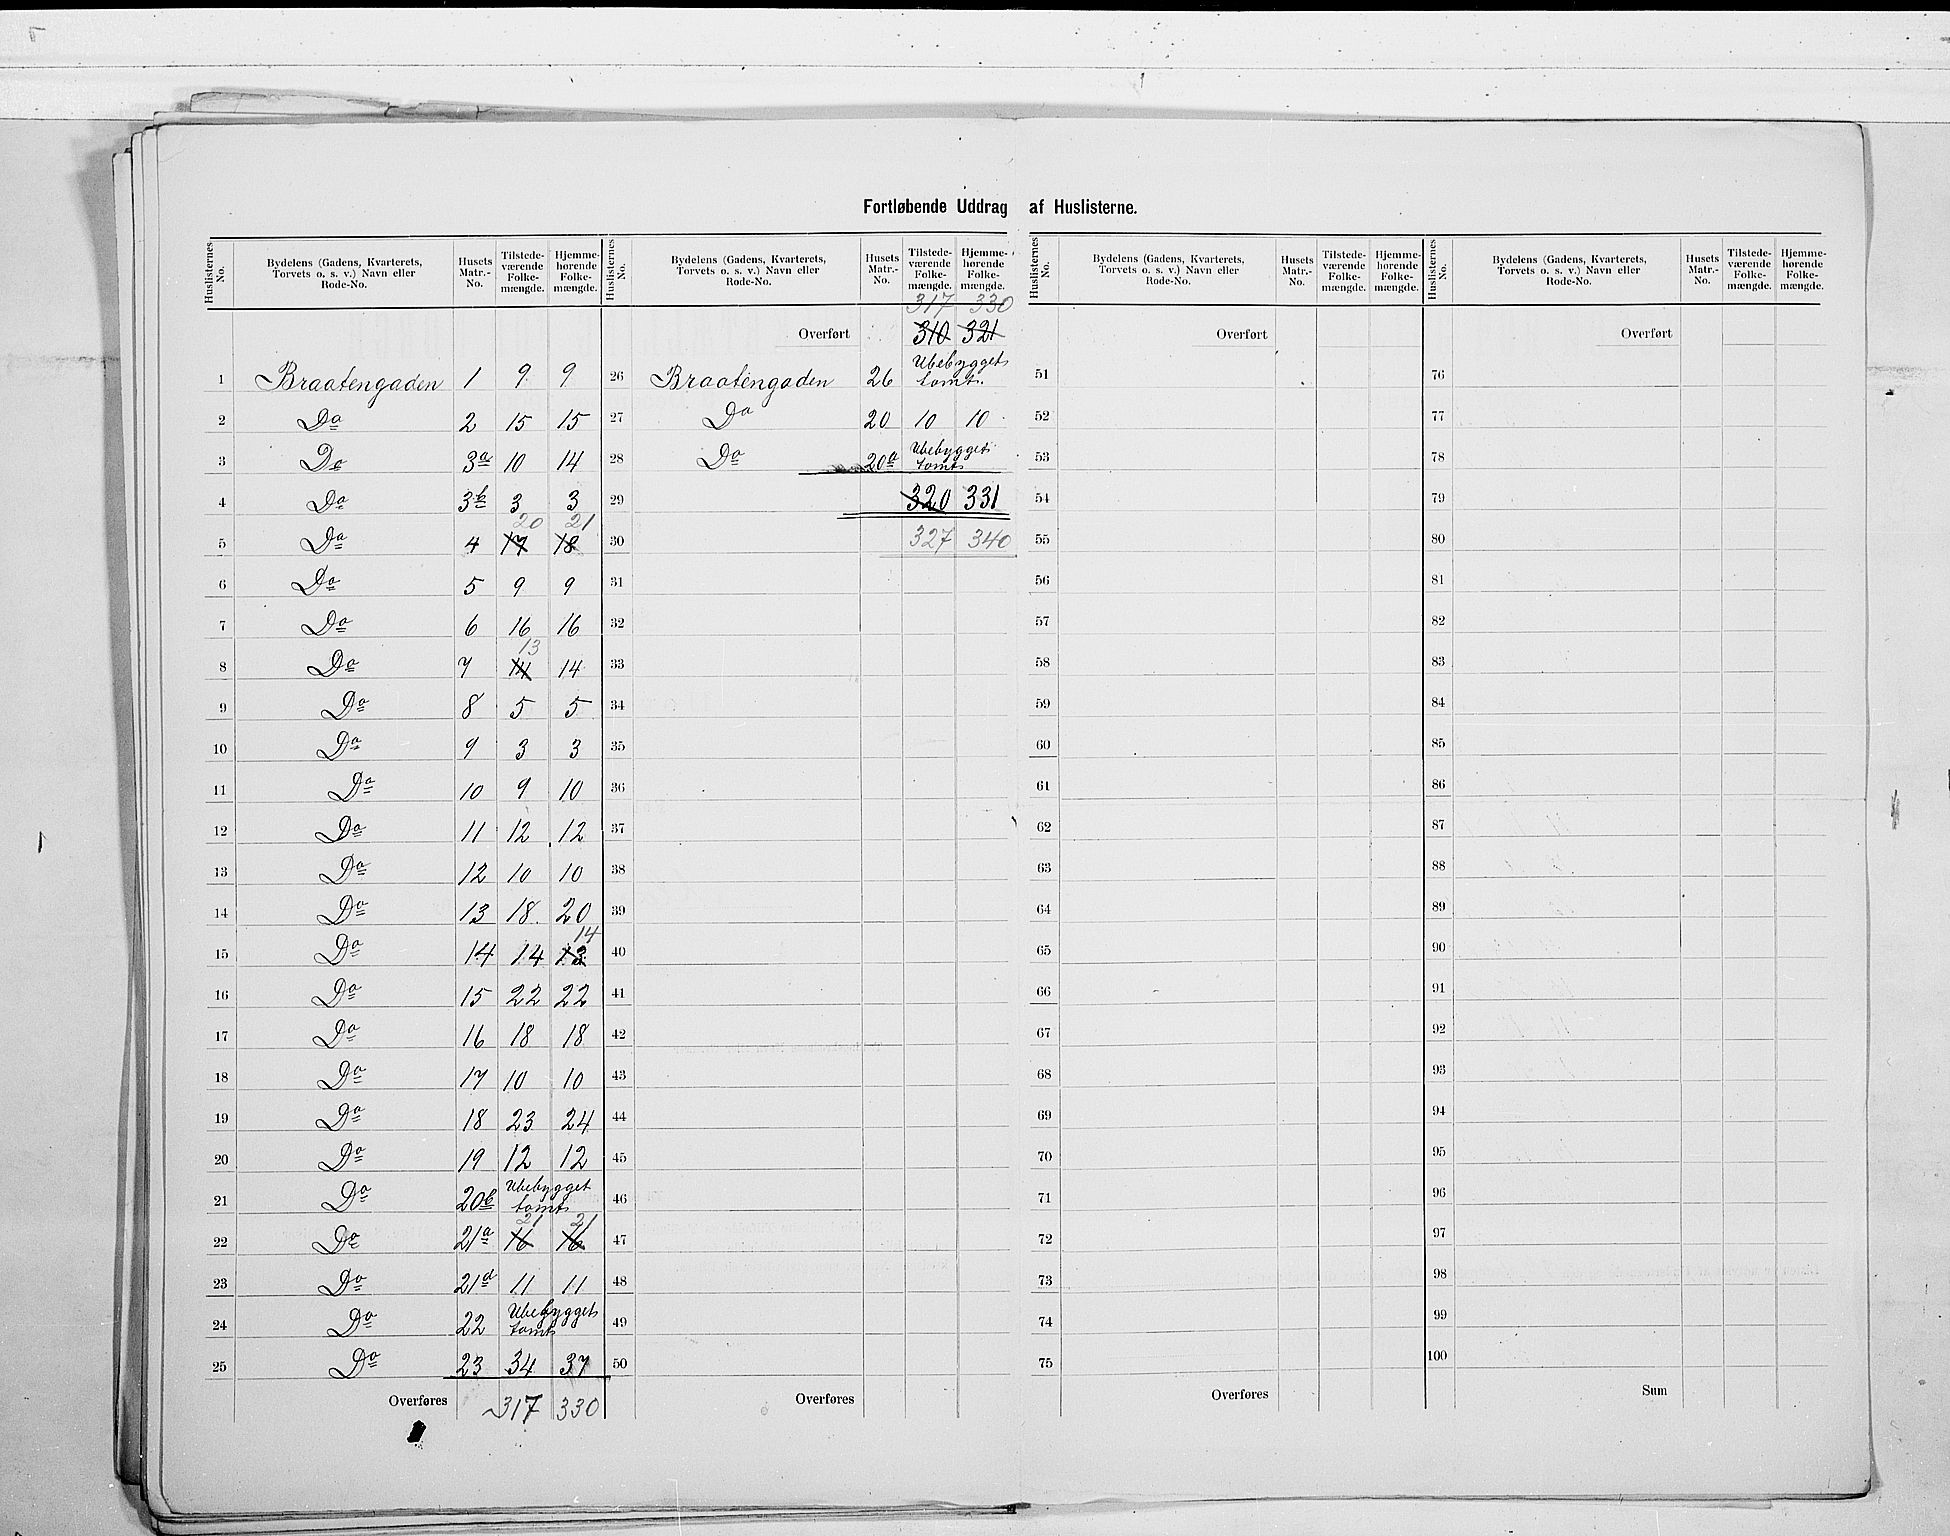 Fortløbende Uddrag af Huslisterne.
Huslisternes No. Bydelens (Gadens, Kvarterets, Torvets o. s. v.) Navn eller Rode-No. Husets Matr.-No. Tilstede-værende Folke-mængde. Hjemme-hørende Folke-mængde.
1 Braatengaden 1 9 9
2 Do 2 15 15
3 Do 3a 10 14
4 Do 3b 3 3
20 21
5 Do 4 17 18
6 Do 5 9 9
7 Do 6 16 16
13
8 Do 7 14 14
9 Do 8 5 5
10 Do 9 3 3
11 Do 10 9 10
12 Do 11 12 12
13 Do 12 10 10
14 Do 13 18 20
14
15 Do 14 14 13
16 Do 15 22 22
17 Do 16 18 18
18 Do 17 10 10
19 Do 18 23 24
20 Do 19 12 12
21 Do 20b Ubebygget tomt
21 21
22 Do 21a 16 16
23 Do 21d 11 11
24 Do 22 Ubebygget tomt
25 Do 23 34 37
Overføres 317 330
Huslisternes No. Bydelens (Gadens, Kvarterets, Torvets o. s. v.) Navn eller Rode-No. Husets Matr.-No. Tilstede-værende Folke-mængde. Hjemme-hørende Folke-mængde.
317 330
Overført 310 321
26 Braatengaden 26 Ubebygget tomt.
27 Do 20 10 10
28 Do 20a Ubebygget tomt
29 320 331
30 327 340
31
32
33
34
35
36
37
38
39
40
41
42
43
44
45
46
47
48
49
50
Overføres
Huslisternes No. Bydelens (Gadens, Kvarterets, Torvets o. s. v.) Navn eller Rode-No. Husets Matr.-No. Tilstede-værende Folke-mængde. Hjemme-hørende Folke-mængde.
Overført
51
52
53
54
55
56
57
58
59
60
61
62
63
64
65
66
67
68
69
70
71
72
73
74
75
Overføres
Huslisternes No. Bydelens (Gadens, Kvarterets, Torvets o. s. v.) Navn eller Rode-No. Husets Matr.-No. Tilstede-værende Folke-mængde. Hjemme-hørende Folke-mængde.
Overført
76
77
78
79
80
81
82
83
84
85
86
87
88
89
90
91
92
93
94
95
96
97
98
99
100
Sum